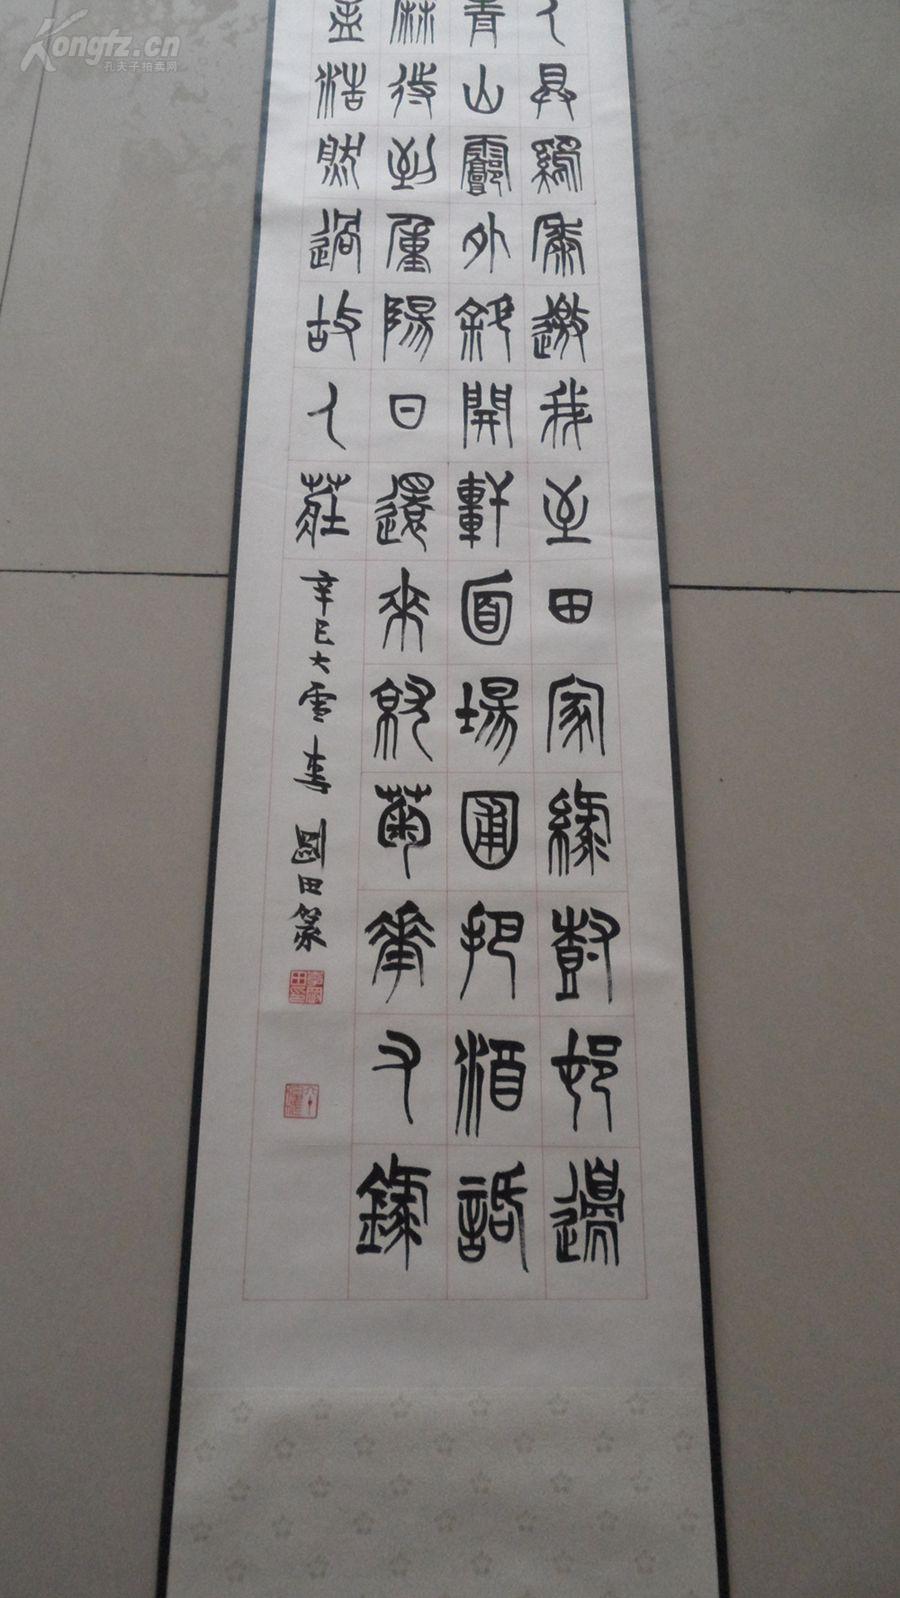 人具鷄黍邀我至田家緑樹邨邊
青山郭外斜開軒面場圃把酒話
麻待到重陽日還來就菊華又録
孟浩然過故人莊
辛巳大雪 李國田篆
Kongfz.cn
孔夫子拍卖网